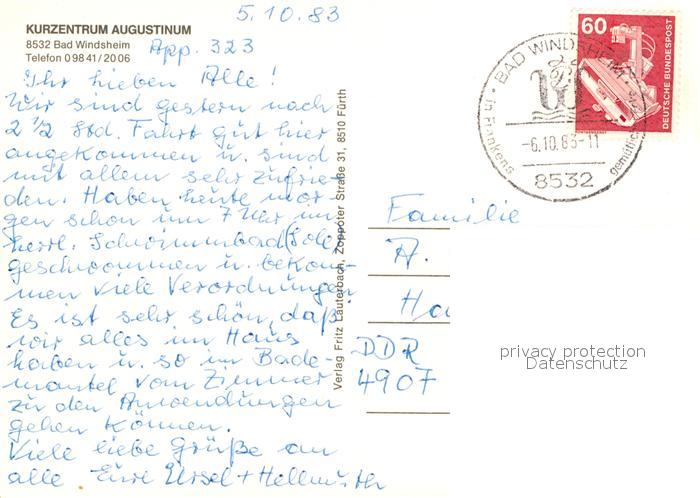 5.10.83
KURZENTRUM AUGUSTINUM
8532 Bad Windsheim
Telefon 0 98 41 / 20 06
App. 323
Ihr lieben Alle!
Wir sind gestern nach
2 1/2 Std. Fahrt gut hier
angekommen u. sind
mit allem sehr zufrie-
den. Haben heute mor-
gen schon um 7 Uhr im
herrl. Schwimmbad (Sole)
geschwommen u. bekom-
men viele Verordnungen
Es ist sehr schön, daß
wir alles im Haus
haben u. so im Bade-
mantel vom Zimmer
zu den Anwendungen
gehen können.
Viele liebe Grüße an
alle Eure Ursel + Hellmuth
Verlag Fritz Lauterbach, Zoppoter Straße 31, 8510 Fürth
60
DEUTSCHE BUNDESPOST
BAD WINDSHEIM
-6.10.83-11
8532
in Frankens
Familie
A.
DDR
4907
privacy protection
Datenschutz